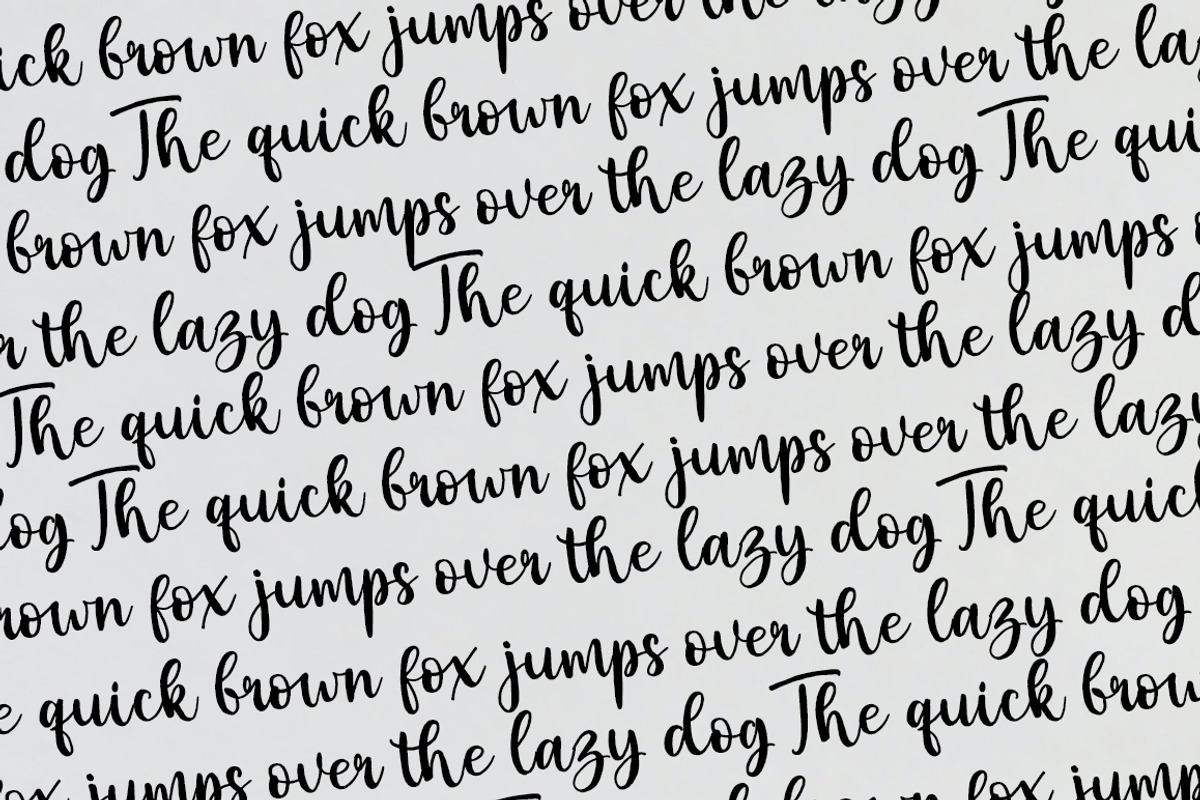 brown fox jumps over the
dog The quick brown fox jumps over the
brown fox jumps over the lazy dog The
the lazy dog The quick brown fox jumps
The quick brown fox jumps over the lazy
The quick brown fox jumps over the lazy
fox jumps over the lazy dog The quick
quick brown fox jumps over the lazy dog
jumps over the lazy dog The quick